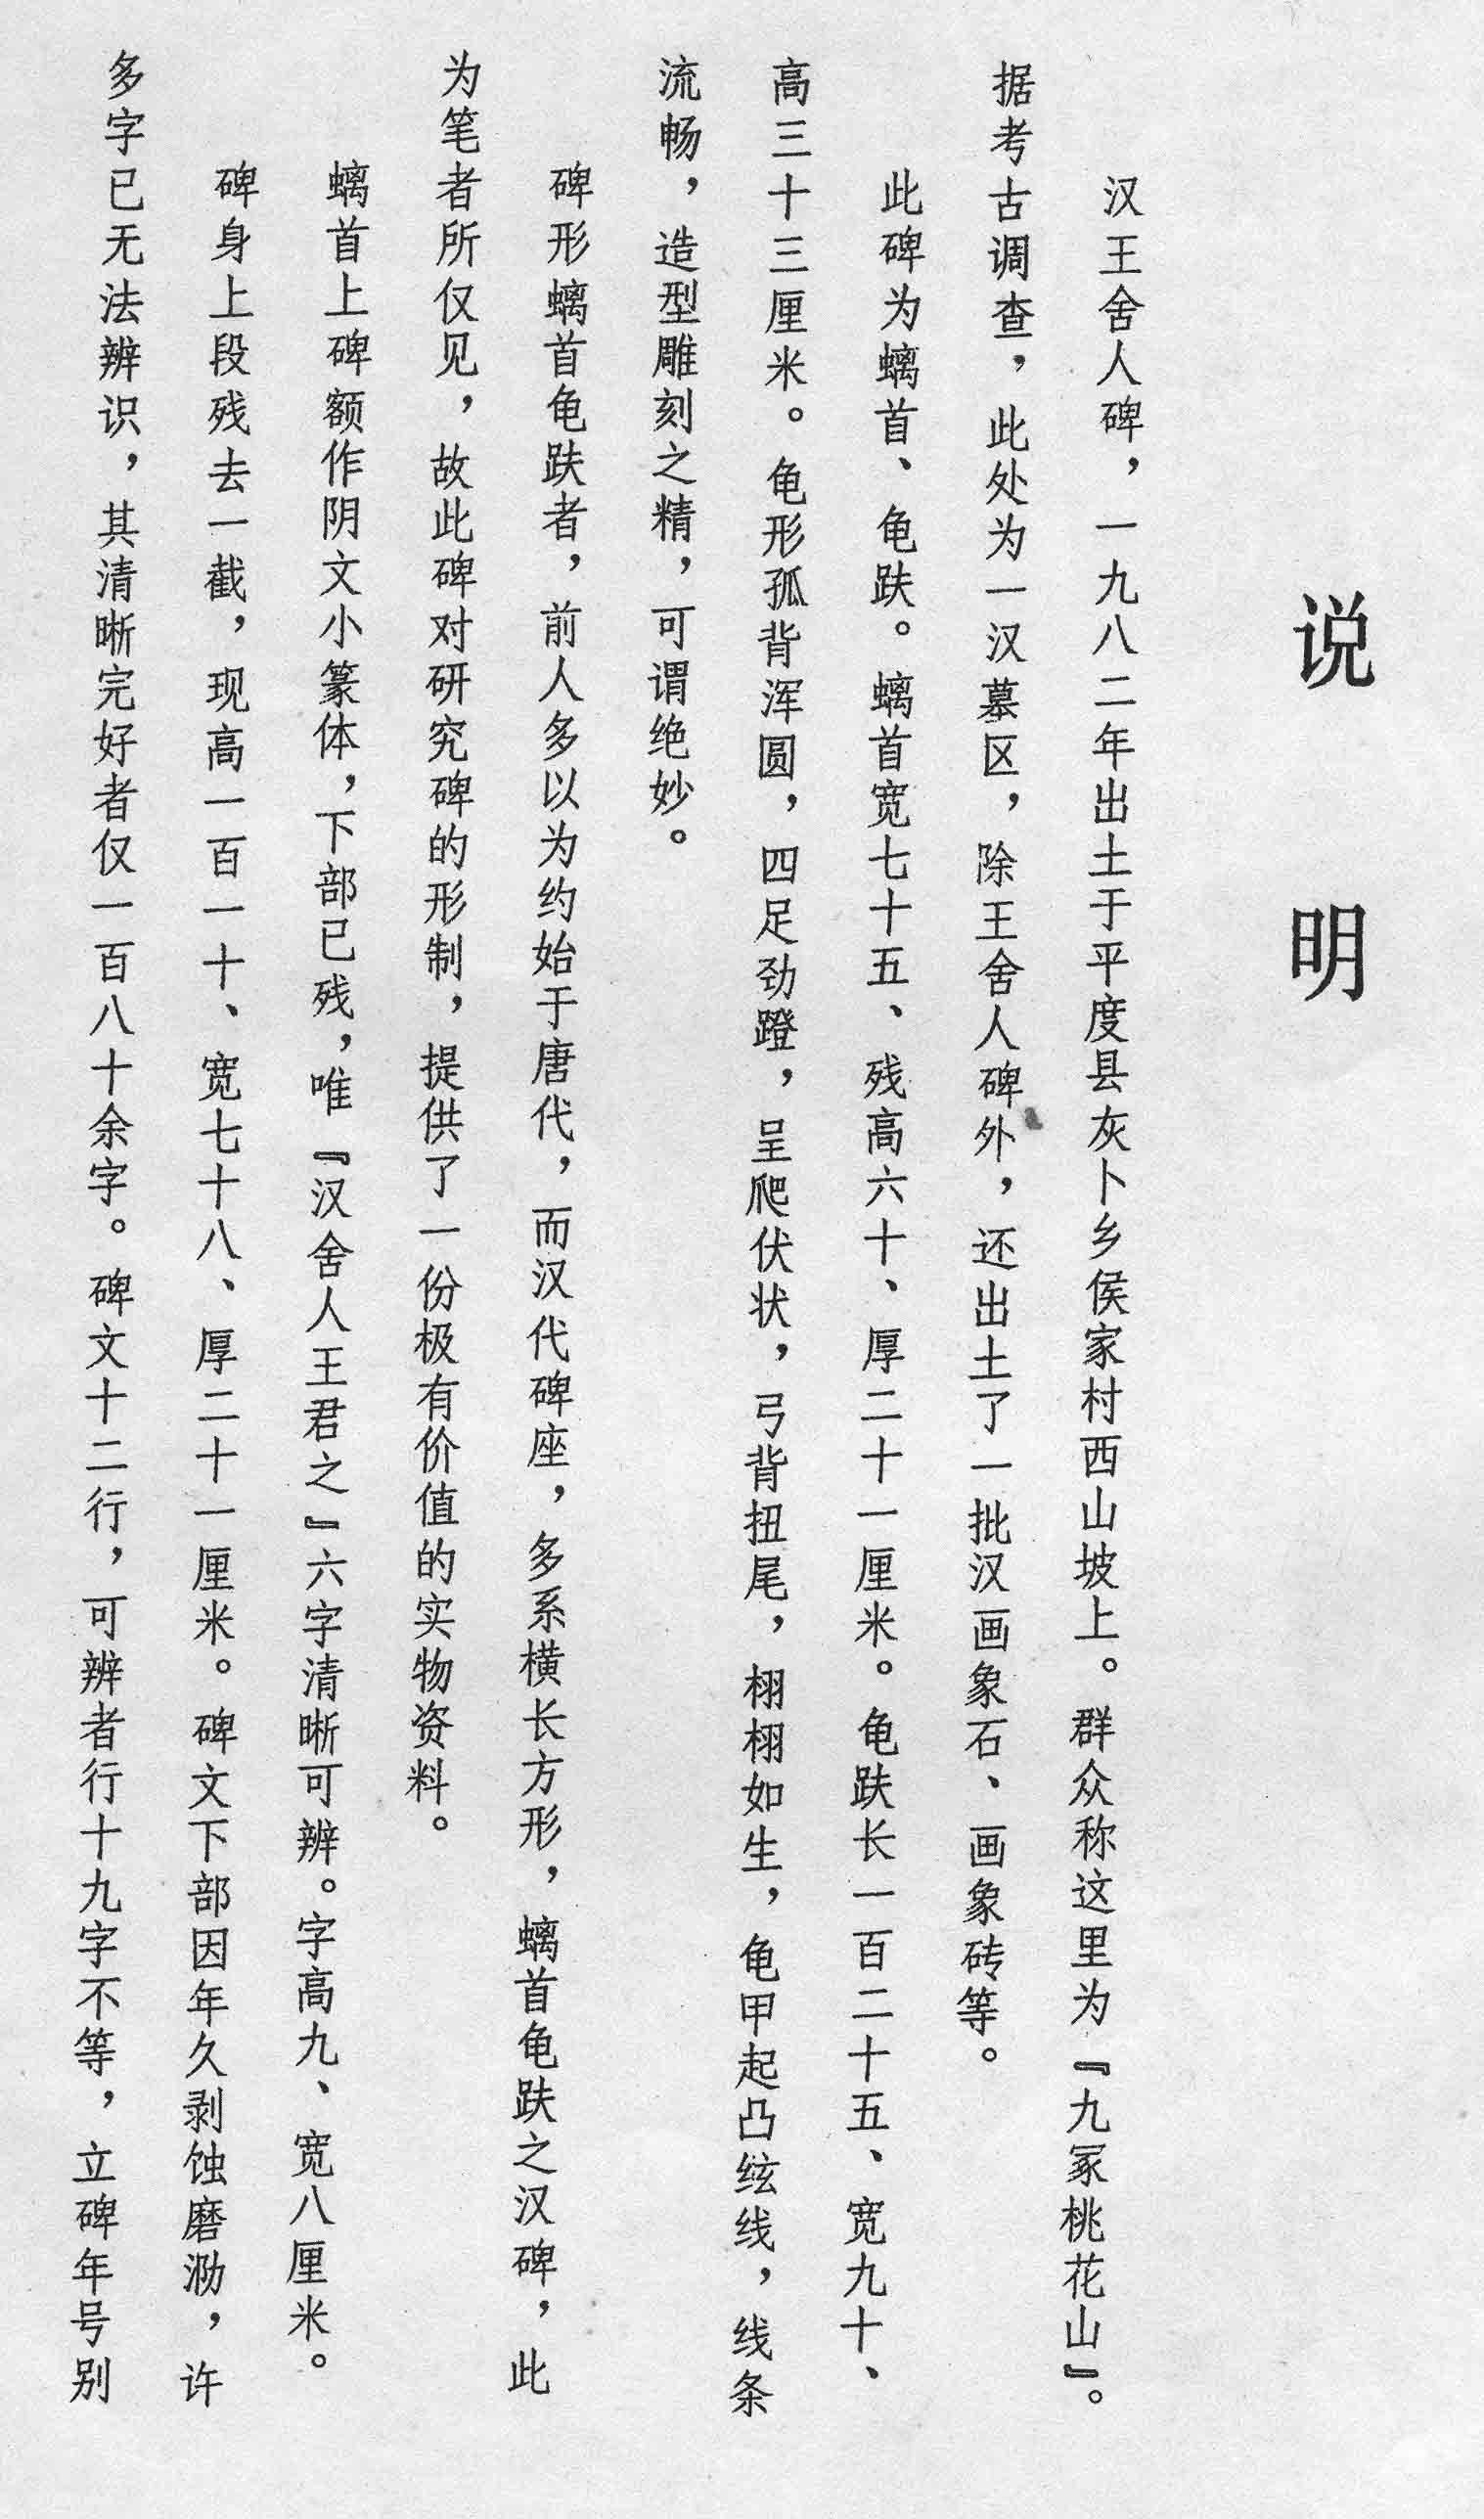 说明
汉王舍人碑，一九八二年出土于平度县灰卜乡侯家村西山坡上。群众称这里为『九冢桃花山』。
据考古调查，此处为一汉墓区，除王舍人碑外，还出土了一批汉画象石、画象砖等。
此碑为螭首、龟趺。螭首宽七十五、残高六十、厚二十一厘米。龟趺长一百二十五、宽九十、
高三十三厘米。龟形孤背浑圆，四足劲蹬，呈爬伏状，弓背扭尾，栩栩如生，龟甲起凸纹线，线条
流畅，造型雕刻之精，可谓绝妙。
碑形螭首龟趺者，前人多以为约始于唐代，而汉代碑座，多系横长方形，螭首龟趺之汉碑，此
为笔者所仅见，故此碑对研究碑的形制，提供了一份极有价值的实物资料。
螭首上碑额作阴文小篆体，下部已残，唯『汉舍人王君之』六字清晰可辨。字高九、宽八厘米。
碑身上段残去一截，现高一百一十、宽七十八、厚二十一厘米。碑文下部因年久剥蚀磨泐，许
多字已无法辨识，其清晰完好者仅一百八十余字。碑文十二行，可辨者行十九字不等，立碑年号别